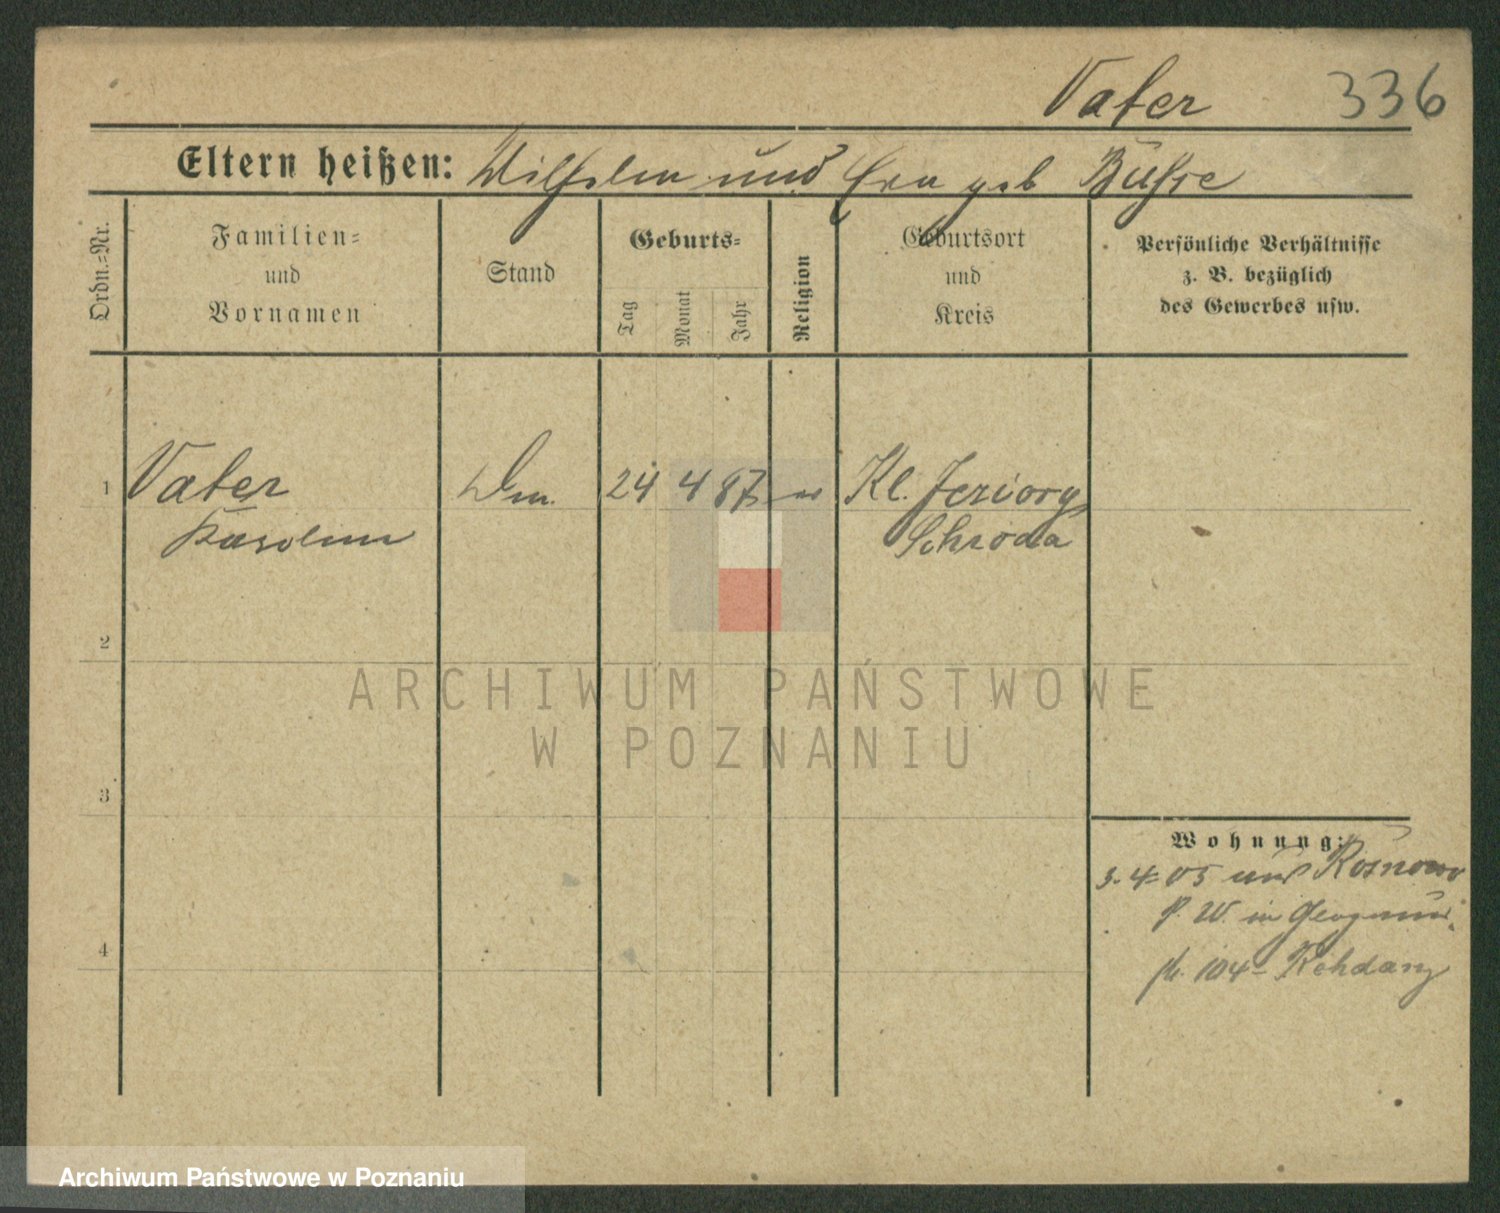 Vater 336
Eltern heißen: Wilhelm und geb Buhse
Ordn.-Nr.
Familien-
und
Vornamen
Stand
Geburts-
Tag
Monat
Jahr
Religion
Geburtsort
und
Kreis
Persönliche Verhältnisse
z. B. bezüglich
des Gewerbes usw.
1 Vater 24 4 87 Kl. Jeziory
Schroda
2
3
4
Wohnung:
3. 4. 05 aus Rosnowo
P. W. in
104
ARCHIWUM PAŃSTWOWE
W POZNANIU
Archiwum Państwowe w Poznaniu